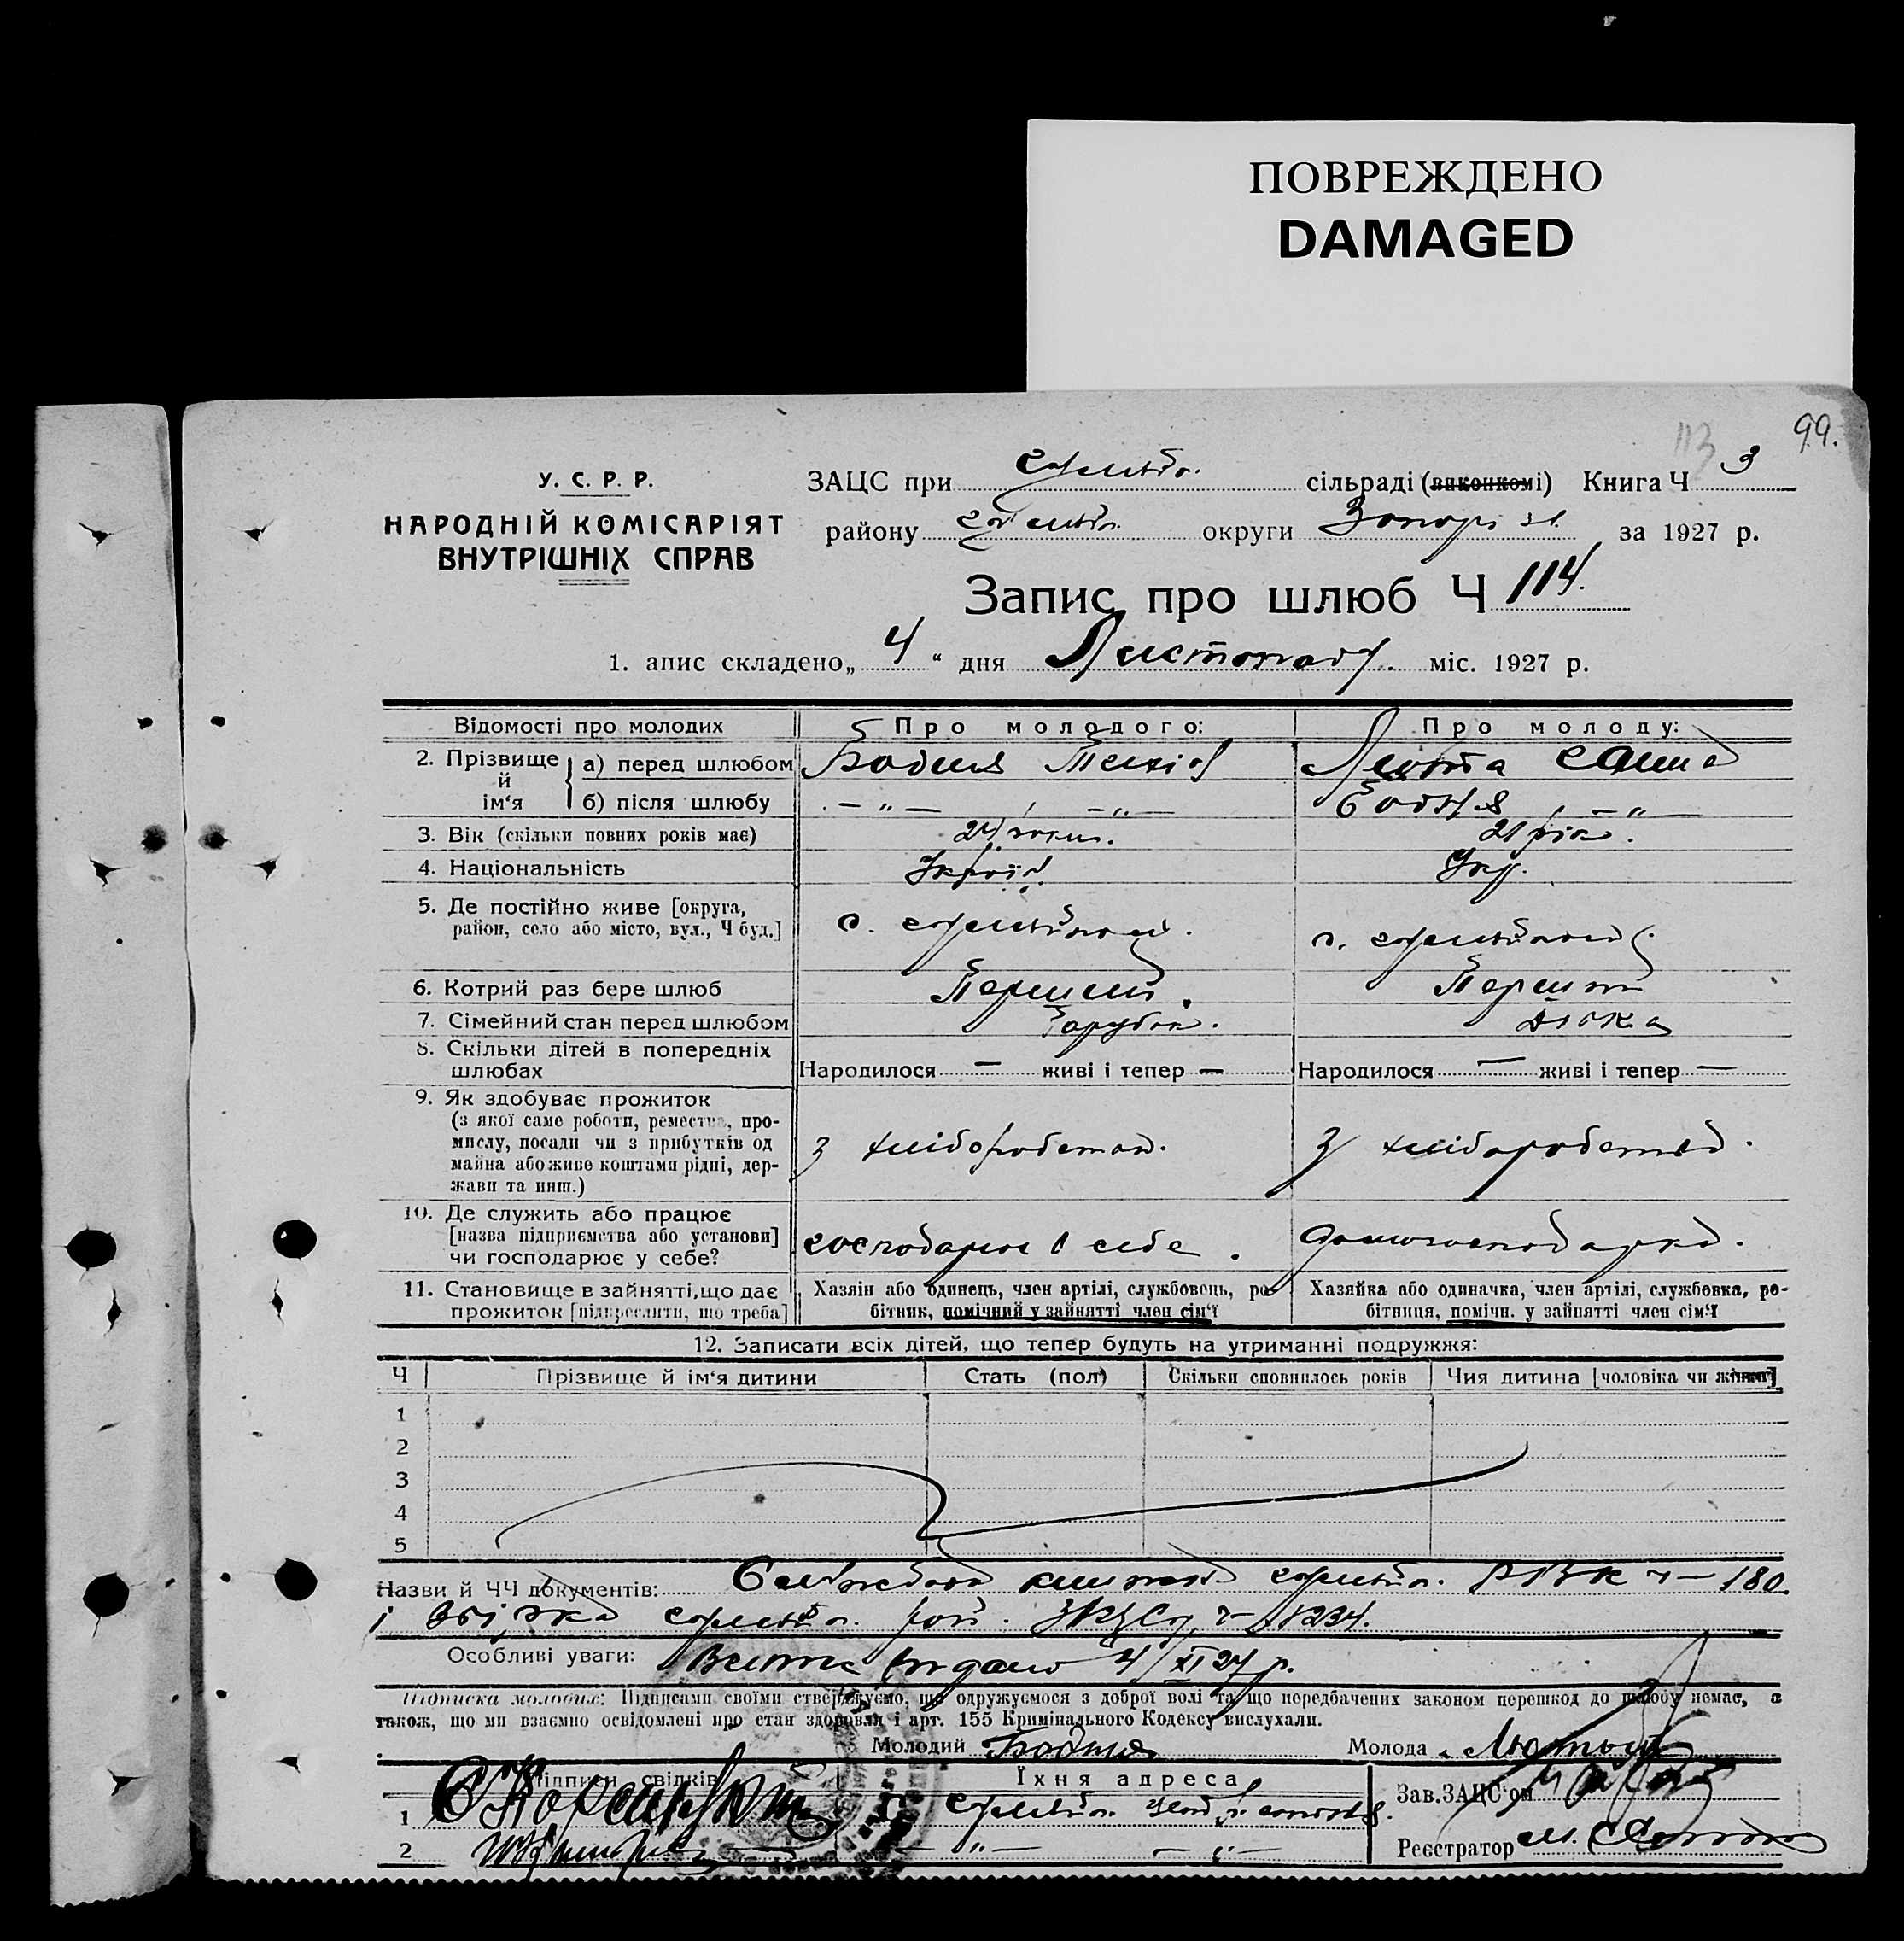 ПОВРЕЖДЕНО
DAMAGED
99.
113
У. С. Р. Р.
НАРОДНІЙ КОМІСАРІЯТ
ВНУТРІШНІХ СПРАВ
ЗАЦС при сільраді (виконкомі) Книга Ч 3
району округи за 1927 р.
Запис про шлюб Ч 114.
1. апис складено „ 4 “ дня Листопаду. міс. 1927 р.
Відомості про молодих Про молодого: Про молоду:
2. Прізвище й ім‘я а) перед шлюбом Бодня Люта
б) після шлюбу — „ — — „ — Бодня — „ —
3. Вік (скільки повних років має) 24 роки. 21 рік.
4. Національність Україн. Укр.
5. Де постійно живе [округа,
район, село або місто, вул., Ч буд.] с. с.
6. Котрий раз бере шлюб Перший. Перший
7. Сімейний стан перед шлюбом Парубок. Дівка
8. Скільки дітей в попередніх
шлюбах Народилося — живі і тепер — Народилося — живі і тепер —
9. Як здобуває прожиток
(з якої саме роботи, ремества, про-
мислу, посади чи з прибутків од
майна або живе коштами рідні, дер-
жави та инш.) з хліборобства. з хліборобства.
10. Де служить або працює
[назва підприємства або установи]
чи господарює у себе? господарює в себе. домогосподарка.
11. Становище в зайнятті, що дає
прожиток [підкреслити, що треба]
Хазяін або одинець, член артілі, службовець, ро-
бітник, помічний у зайнятті член сім‘ї
Хазяйка або одиначка, член артілі, службовка, ро-
бітниця, помічн. у зайнятті член сім‘ї
12. Записати всіх дітей, що тепер будуть на утриманні подружжя:
Ч Прізвище й ім‘я дитини Стать (пол) Скільки сповнилось років Чия дитина [чоловіка чи жінки]
1
2
3
4
5
Назви й ЧЧ документів: книжка РВК ч — 180.
і 1234.
Особливі уваги: Витяг видано 4/XI 27 р.
Підписка молодих: Підписами своїми стверджуємо, що одружуємося з доброї волі та що передбачених законом перешкод до шлюбу немає, а
також, що ми взаємно освідомлені про стан здоровля і арт. 155 Кримінального Кодексу вислухали.
Молодий Бодня Молода
Підписи свідків Їхня адреса Зав. ЗАЦС‘ом
1
2 — „ — — „ — Реєстратор